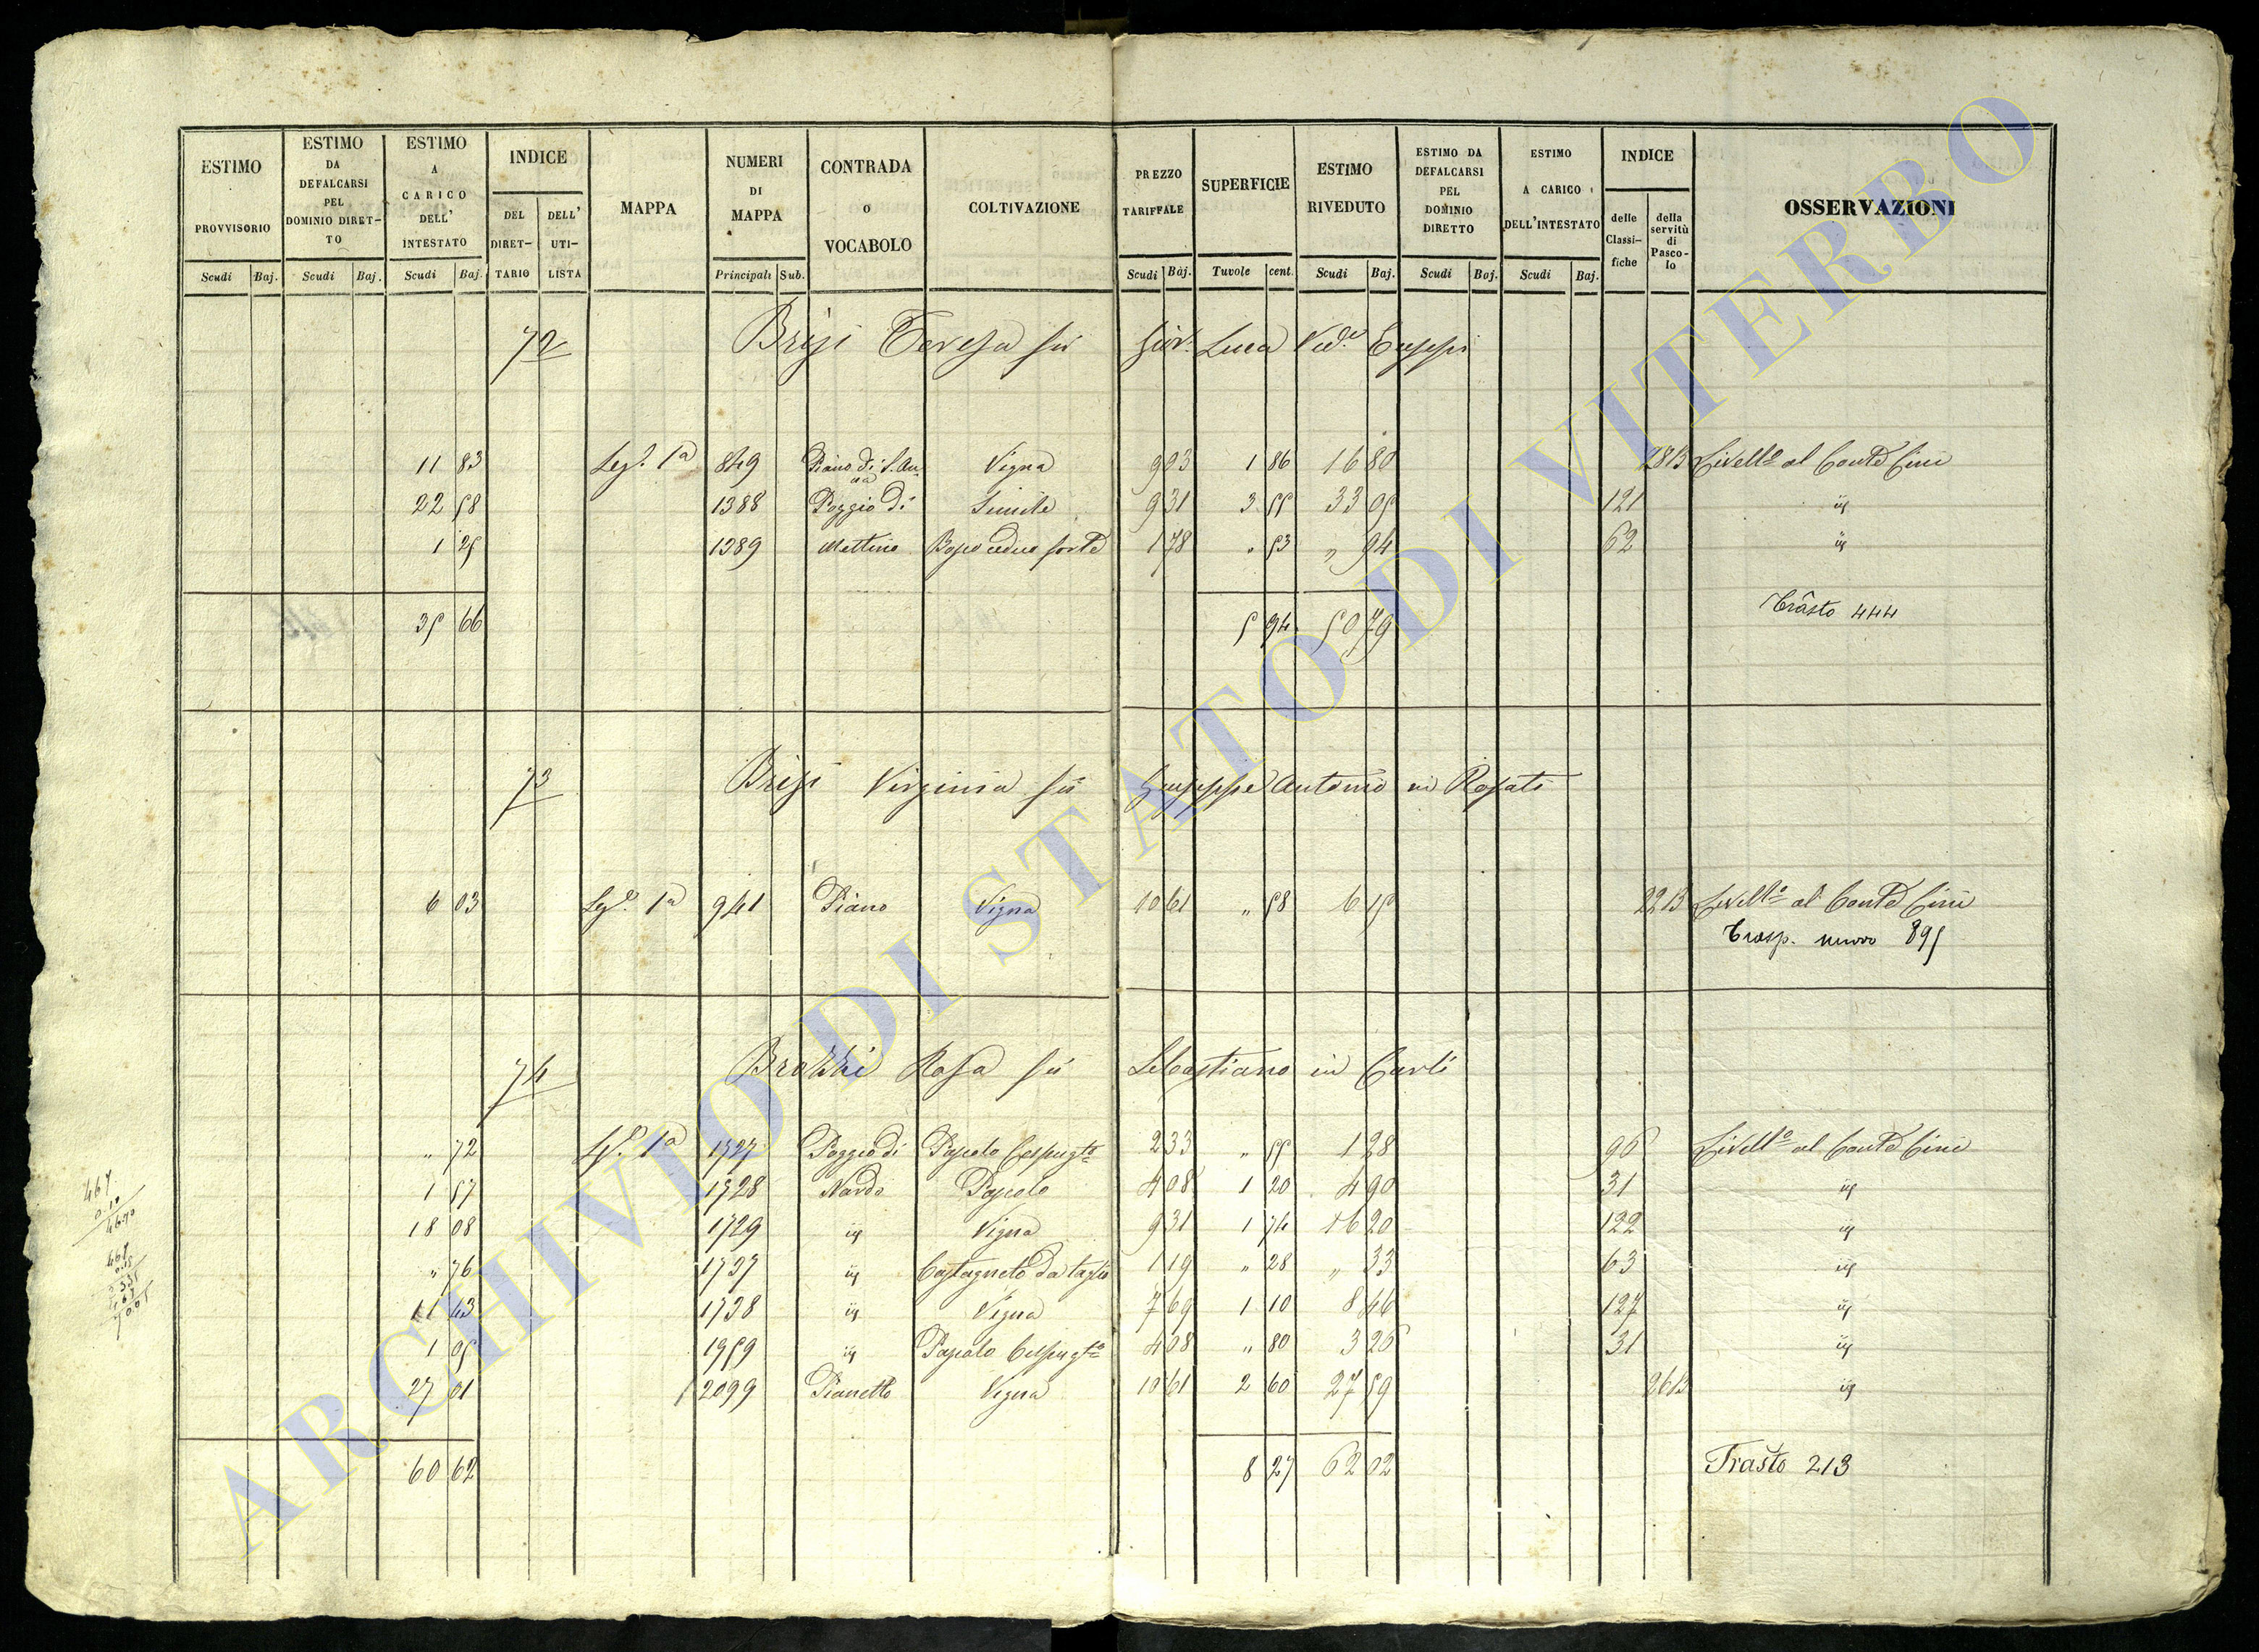 ESTIMO PROVVISORIO Scudi Baj.
ESTIMO DA DEFALCARSI PEL DOMINIO DIRET- TO Scudi Baj.
ESTIMO A CARICO DELL' INTESTATO Scudi Baj.
INDICE DEL DIRET- TARIO DELL' UTI- LISTA
MAPPA
NUMERI DI MAPPA Principali Sub.
CONTRADA O VOCABOLO
COLTIVAZIONE
PREZZO TARIFFALE Scudi Baj.
SUPERFICIE Tavole cent.
ESTIMO RIVEDUTO Scudi Baj.
ESTIMO DA DEFALCARSI PEL DOMINIO DIRETTO Scudi Baj.
ESTIMO A CARICO DELL'INTESTATO Scudi Baj.
INDICE delle Classi- fiche della servitù di Pasco- lo
OSSERVAZIONI
72 Brizi Teresa fu Giov. Luca Ved.a
11 83 1a 849 Piano di S. Anna Vigna 903 1 86 16 80 Livello al Conte Cini
22 58 1388 Poggio di Simile 9 31 3 55 33 05 121 iij
1 25 1389 Mettino Bosco ceduo forte 1 78 " 53 " 94 62 iij
35 66 5 94 50 79 Trasto 444
73 Brizi Virginia fu Giuseppe Antonio in Rosati
6 03 1a 941 Piano Vigna 10 61 " 58 6 15 Livello al Conte Cini
Trasp. nuovo 895
74 Brozzi Rosa fu Sebastiano in Carli
" 72 1a 1727 Poggio di Pascolo Cespugto 2 33 " 55 1 28 96 Livello al Conte Cini
1 57 1728 Nardo Pascolo 4 08 1 20 4 90 31 iij
18 08 1729 iij Vigna 9 31 1 74 16 20 122 iij
" 76 1737 iij Castagneto da taglio 1 19 " 28 " 33 63 iij
11 43 1738 iij Vigna 7 69 1 10 8 46 127 iij
1 05 1959 iij Pascolo Cespugto 4 08 " 80 3 26 31 iij
27 01 2099 Pianetto Vigna 10 61 2 60 27 59 iij
60 62 8 27 62 02 Trasto 213
ARCHIVIO DI STATO DI VITERBO